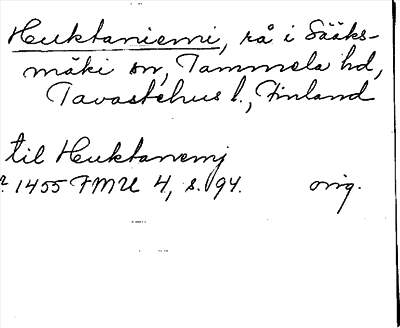 Huktaniemi, rå i Sääks-
mäki sn, Tammela hd,
Tavastehus l., Finland
til Huktanemj
1455 FMU 4, s. 94. orig.